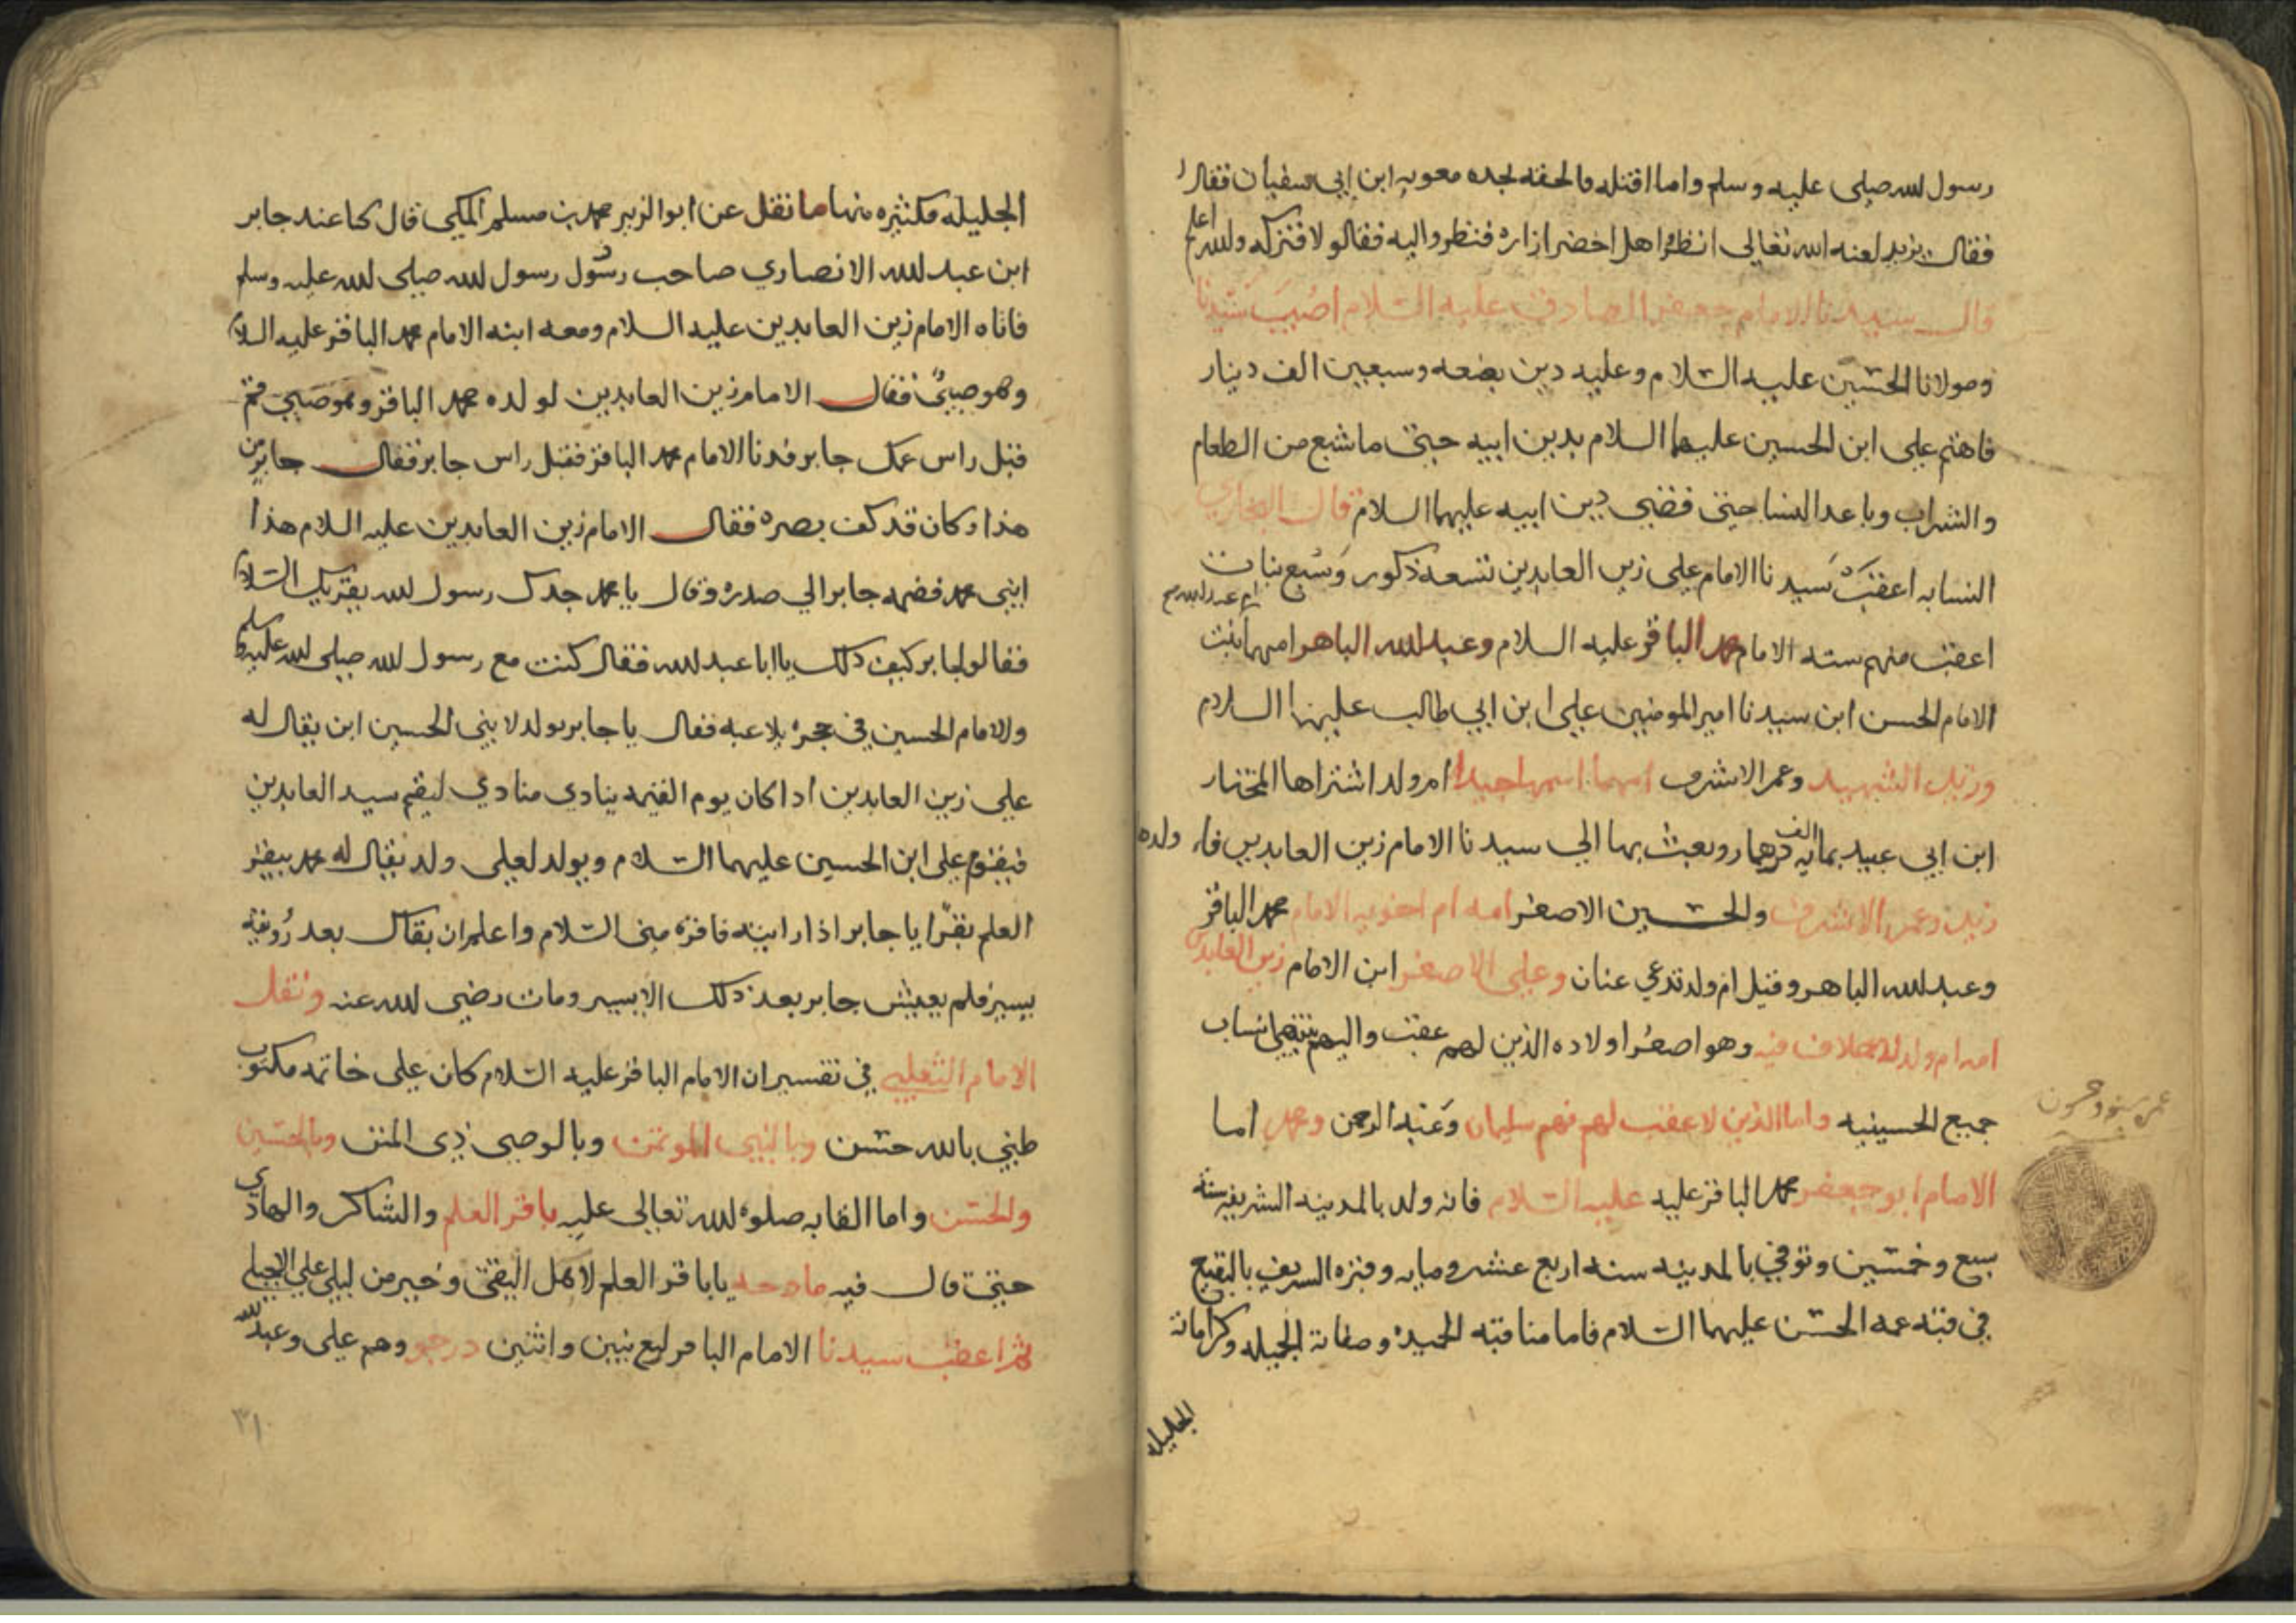 رسول لله صلى عليه وسلم واما اقتله فالحقه لجده معويه ابن ابي سفيان فقال
فقال يزيد لعنه الله تعالى انظروا هل اخضر ازاره فنظروا اليه فقالو لا فتركه ولله اعلم
قال سيدنا الامام جعفر الصادق عليه السلام اصيب سيدنا
ومولانا الحسين عليه السلام وعليه دين بضعه وسبعين الف دينار
فاهتم على ابن الحسين عليهما السلام بدين ابيه حتى ما شبع من الطعام
والشراب وباعد النسا حتى قضى دين ابيه عليهما السلام قال البخاري
النسابه اعقب سيدنا الامام على زين العابدين تسعه ذكور وسبع بنات
اعقب منهم سته الامام محمد الباقر عليه السلام وعبد لله الباهر امهما بنت
الامام الحسن ابن سيدنا امير المومنين على ابن ابي طالب عليهما السلام
وزيد الشهيد وعمر الاشرف امهما اسمها جيدا ام ولد اشتراها المختار
ابن ابي عبيد بمايه الف درهما وبعث بها الي سيدنا الامام زين العابدين ولده
زيد وعمر الاشرف والحسين الاصغر امه ام اخويه الامام محمد الباقر
وعبد لله الباهر وقيل ام ولد تدعي عنان وعلى الاصغر ابن الامام زين العابدين
امه ام ولد لا خلاف فيه وهو اصغر اولاده الذين لهم عقب واليهم ينتهي انساب
جميع الحسينيه واما الذين لا عقب لهم فهم سليمان وعبد الرحمن وعمر اما
الامام ابو جعفر محمد الباقر عليه عليه السلام فانه ولد بالمدينه الشريفه سنه
سبع وخمسين وتوفي بالمدينه سنه اربع عشر ومايه وقبره الشريف بالبقيع
في قبته عمه الحسن عليهما السلام فاما مناقبه الحميده وصفاته الجميله وكراماته
الجليله
الجليله فكثيره منها ما نقل عن ابو الزبير محمد بن مسلم المكي قال كنا عند جابر
ابن عبد لله الانصاري صاحب رسول رسول لله صلى لله عليه وسلم
فاتاه الامام زين العابدين عليه السلام ومعه ابنه الامام محمد الباقر عليه السلام
وهو صبي فقال الامام زين العابدين لولده محمد الباقر وهو صبي قم
قبل راس عمك جابر فدنا الامام محمد الباقر فقبل راس جابر فقال جابر من
هذا وكان قد كف بصره فقال الامام زين العابدين عليه السلام هذا
ابني محمد فضمه جابر الي صدره وقال يا محمد جدك رسول لله يقريك السلام
فقالو لجابر كيف ذلك يا ابا عبد لله فقال كنت مع رسول لله صلى لله عليه وسلم
والامام الحسين في حجره يلاعبه فقال يا جابر يولد لابني الحسين ابن يقال له
على زين العابدين اذا كان يوم القيمه ينادي منادي ليقم سيد العابدين
فيقوم على ابن الحسين عليهما السلام ويولد لعلى ولد يقال له محمد يبقر
العلم بقرا يا جابر اذا رايته فاقره مني السلام واعلم ان بقاك بعد رويته
يسير فلم يعيش جابر بعد ذلك الا يسير ومات رضي لله عنه ونقل
الامام الثعلبي في تفسير ان الامام الباقر عليه السلام كان على خاتمه مكتوب
ظني بالله حسن وبالنبي الموتمن وبالوصي ذى المنن وبالحسين
والحسن واما القابه صلوة لله تعالى عليه باقر العلم والشاكر والهادي
حتى قال فيه مادحه يا باقر العلم لاهل التقى وخير من لبى على الاجبل
ثم اعقب سيدنا الامام الباقر اربع بنين واثنين درجو وهم على وعبد لله
٣١